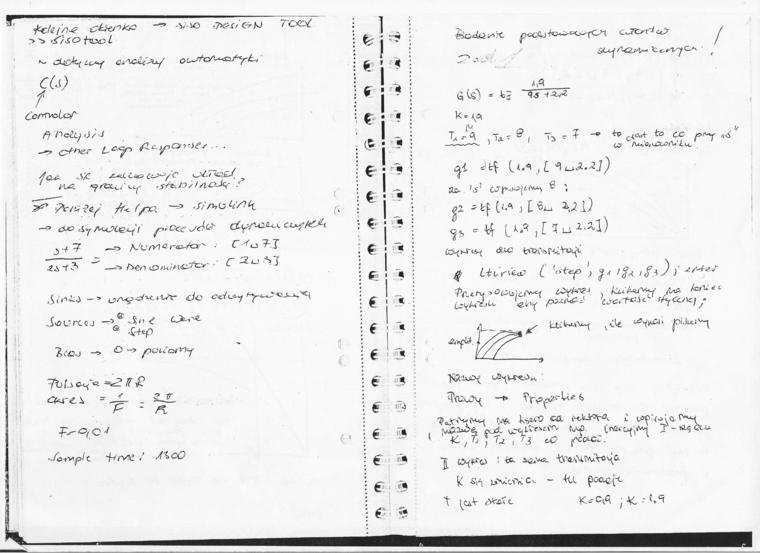 Kolejne okienko → SISO DESIGN TOOL
>> sisotool
~ dotyczy analizy automatyki
C(s)
↑
Controlor
Analysis
→ Other Loop Responses...
Jak się zachowuje układ
na granicy stabilności?
Poniżej Helpa → simulink
→ do symulacji procesów dynamicznych
s+7 → Numerator : [1␣7]
2s+3 = → Denominator : [2␣3]
Sinks → urządzenie do odczytywania
Sources → Sine Wave
Step
Bias → 0 → poziomy
Pulsacja = 2πf
okres = 1/F = 2π/
F=0,01
Sample time: 1300
Badanie podstawowych członów
dynamicznych !
Zad 1
G(s) = 1,9 / 9s+2.2
K=1,9
T1=9, T2=8, T3=7 → to jest to co przy „s"
w mianowniku
g1 = tf (1.9, [9␣2.2])
za 's' wpisujemy 8 :
g2 = tf (1.9, [8␣2.2])
g3 = tf (1.9, [7␣2.2])
wykresy dla transmitacji
ltiview ('step', g1, g2, g3) ; enter
wykres, klikamy na koniec
wykresu aby poznać wartości
amplit.
klikamy, ile wynosi
Nazwy wykresu :
Prawy → Properties
Patrzymy na ksero od rektora i wpisujemy
nazwę pod wykresem np. inercyjny I-rzędu
K, T1, T2, T3 co podać.
II wykres : ta sama transmitacja
K się zmienia - tu podaje
T jest stałe K=0,9 ; K=1,9